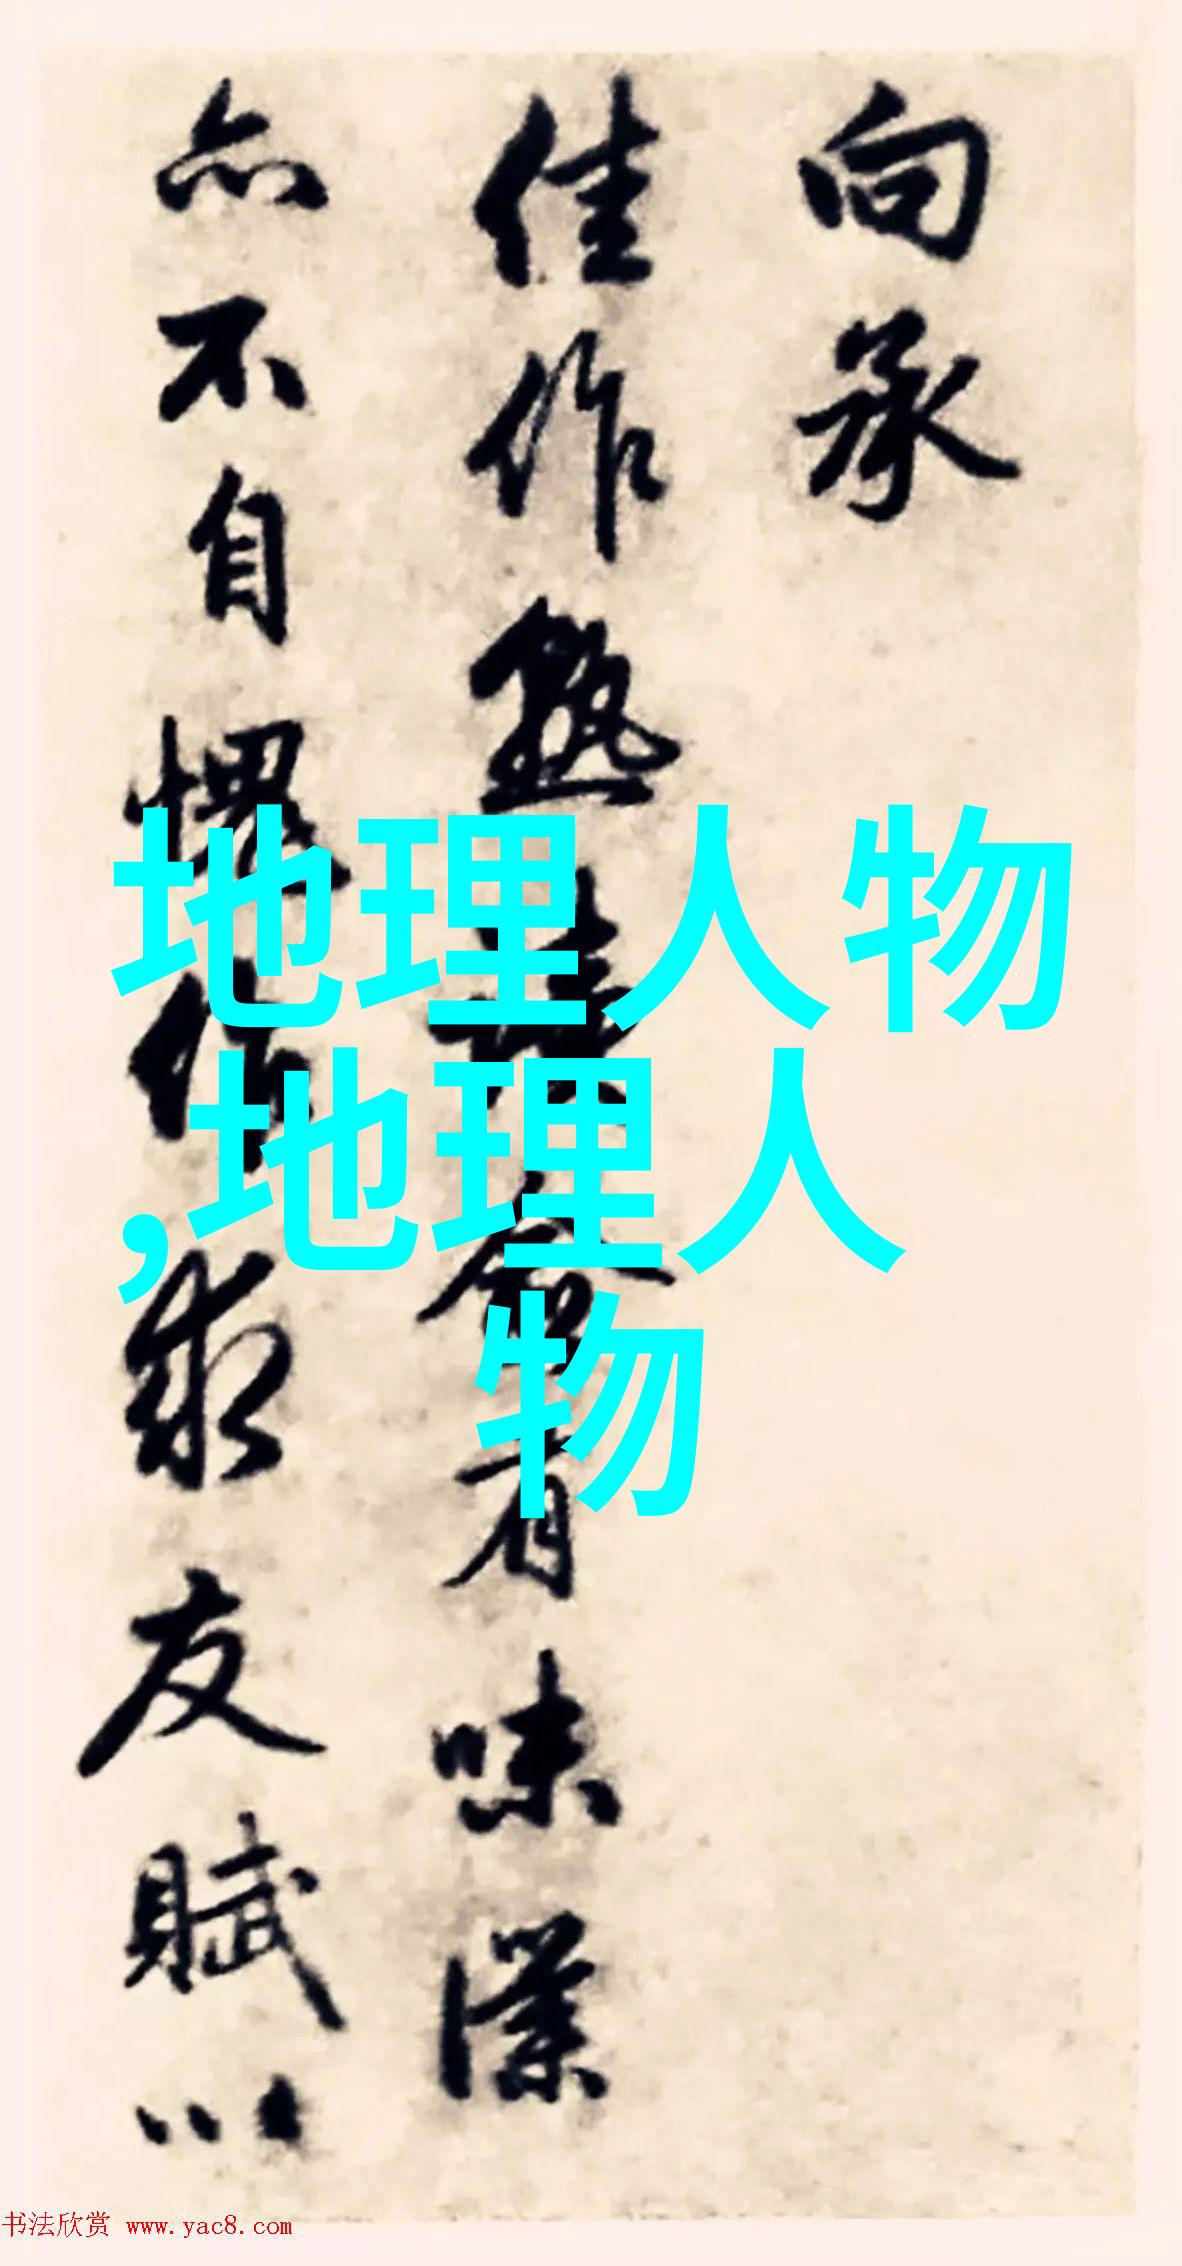 向承
佳作熟读念有味深
亦不自惧作求友赋以
地理人物
,地理人
物
书法欣赏 www.yac8.com